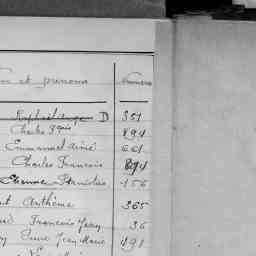 et prénoms Numéros
Raphael Ange D 351
Charles Fçois 894
Emmanuel Aimé 661
Charles Francois 894
Etienne Stanislas 156
Anthème 365
François Jean 36
Pierre Jean Marie 191